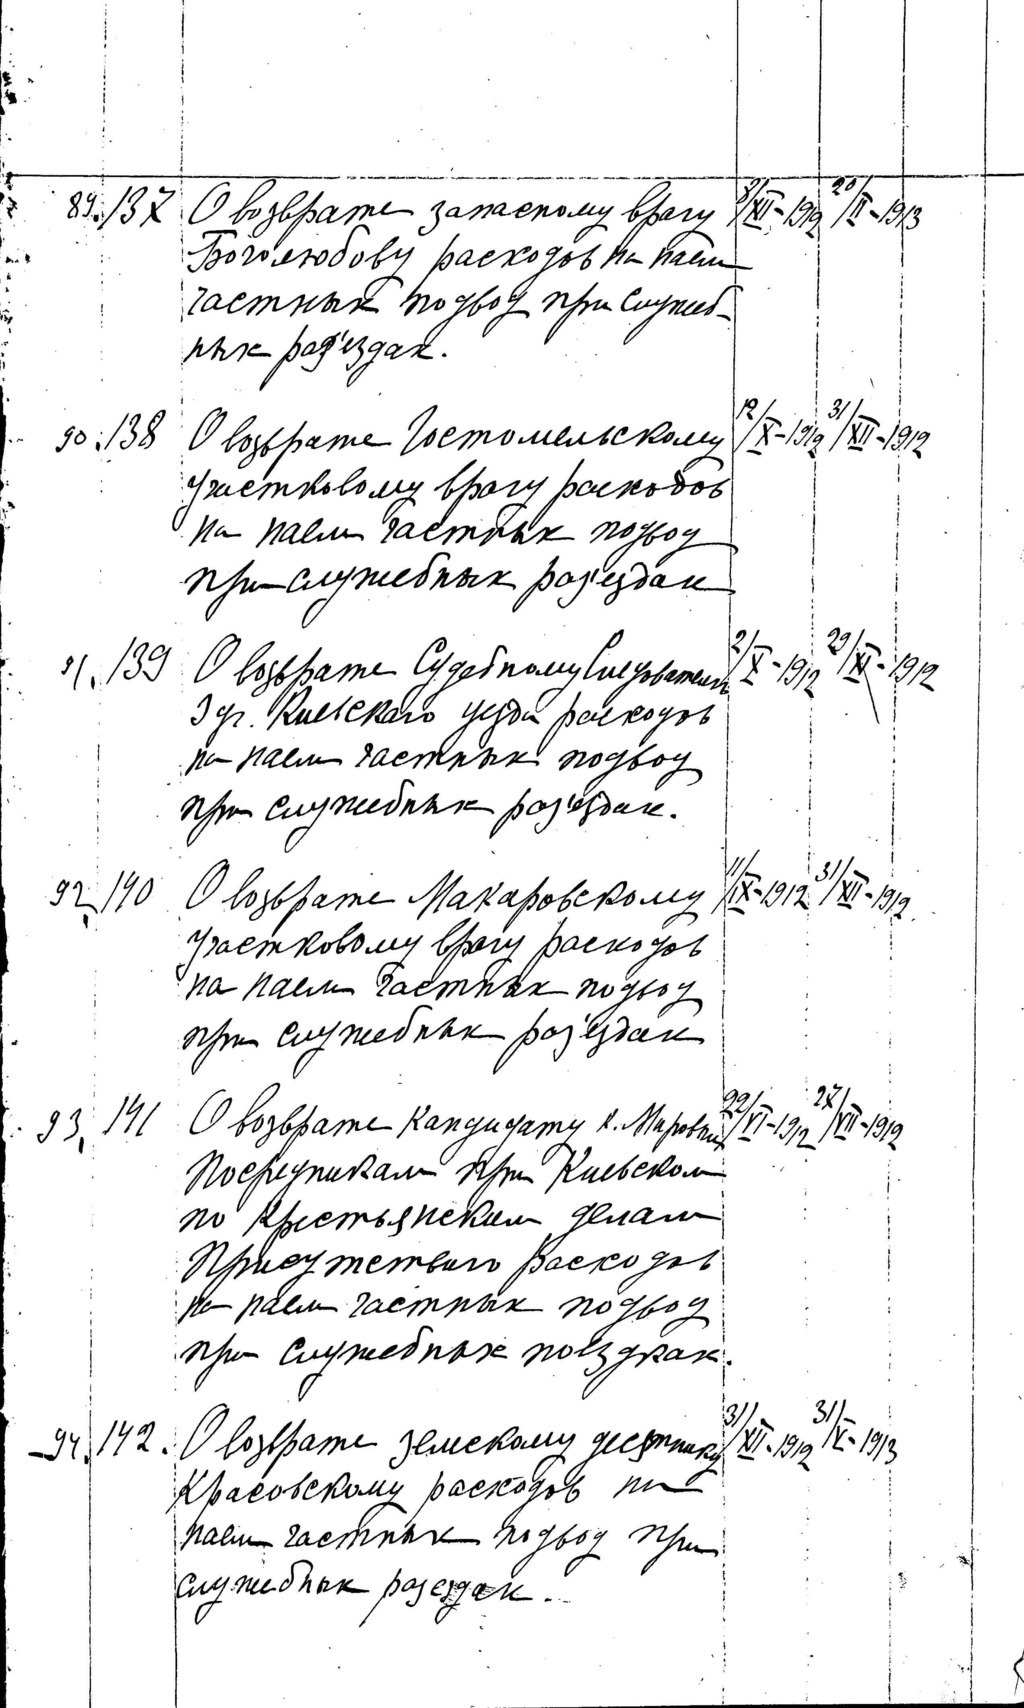 89. 137 О возврате запасному врачу 8/XII-1912 20/II-1913
Боголюбову расходов на наем
частных подвод при служеб-
ных раз'ездах.
90. 138 О возврате Гостомельскому 12/X-1912 31/XII-1912
участковому врачу расходов
на наем частных подвод
при служебных раз'ездах
91. 139 О возврате Судебному Следователю 2/X-1912 29/XI-1912
3 уч. Киевского уезда расходов
на наем частных подвод
при служебных раз'ездах.
92. 140 О возврате Макаровскому 11/IX-1912 31/XII-1912.
участковому врачу расходов
на наем частных подвод
при служебных раз'ездах
93. 141 О возврате кандидату к. Мировым 22/VI-1912 27/VII-1912
Посредникам при Киевском
по крестьянским делам
Присутствию расходов
на наем частных подвод
при служебных поездках.
94. 142. О возврате земскому десятнику 31/XII-1912 31/V-1913
Красовскому расходов на
наем частных подвод при
служебных раз'ездах.